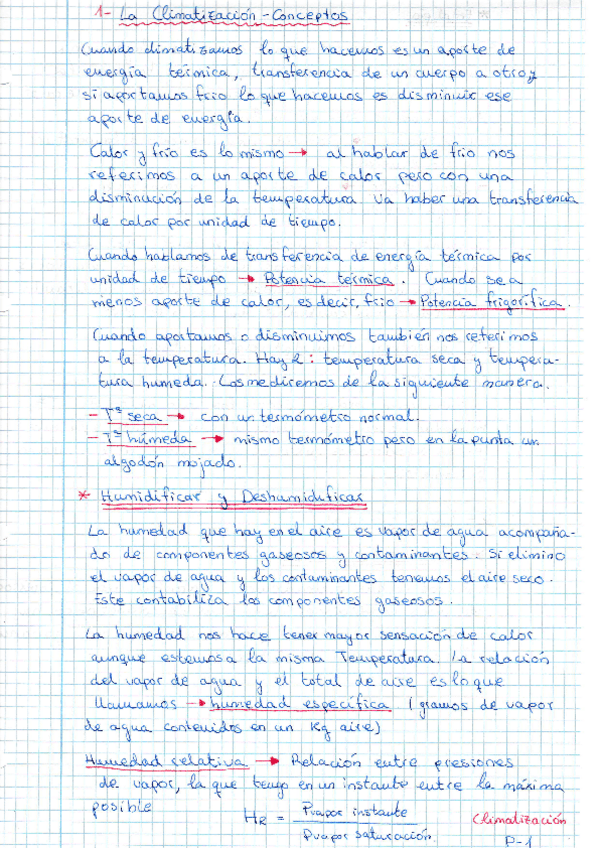 1- La Climatización - Conceptos
Cuando climatizamos lo que hacemos es un aporte de
energía térmica, transferencia de un cuerpo a otro y
si aportamos frio lo que hacemos es disminuir ese
aporte de energía.
Calor y frío es lo mismo → al hablar de frio nos
referimos a un aporte de calor pero con una
disminución de la temperatura va haber una transferencia
de calor por unidad de tiempo.
Cuando hablamos de transferencia de energía térmica por
unidad de tiempo → Potencia térmica. Cuando sea
menos aporte de calor, es decir, frio → Potencia frigorífica.
Cuando aportamos o disminuimos también nos referimos
a la temperatura. Hay 2: temperatura seca y tempera-
tura humeda. Los mediremos de la siguiente manera.
- Tª seca → con un termómetro normal.
- Tª húmeda → mismo termómetro pero en la punta un
algodón mojado.
* Humidificar y Deshumidificar
La humedad que hay en el aire es vapor de agua acompaña-
do de componentes gaseosos y contaminantes. Si elimino
el vapor de agua y los contaminantes tenemos el aire seco.
Este contabiliza los componentes gaseosos.
La humedad nos hace tener mayor sensación de calor
aunque estemos a la misma Temperatura. La relación
del vapor de agua y el total de aire es lo que
llamamos → humedad específica (gramos de vapor
de agua contenidos en un Kg aire)
Humedad relativa → Relación entre presiones
de vapor, la que tengo en un instante entre la máxima
posible
HR = Pvapor instante / Pvapor saturación.
Climatización
P-1